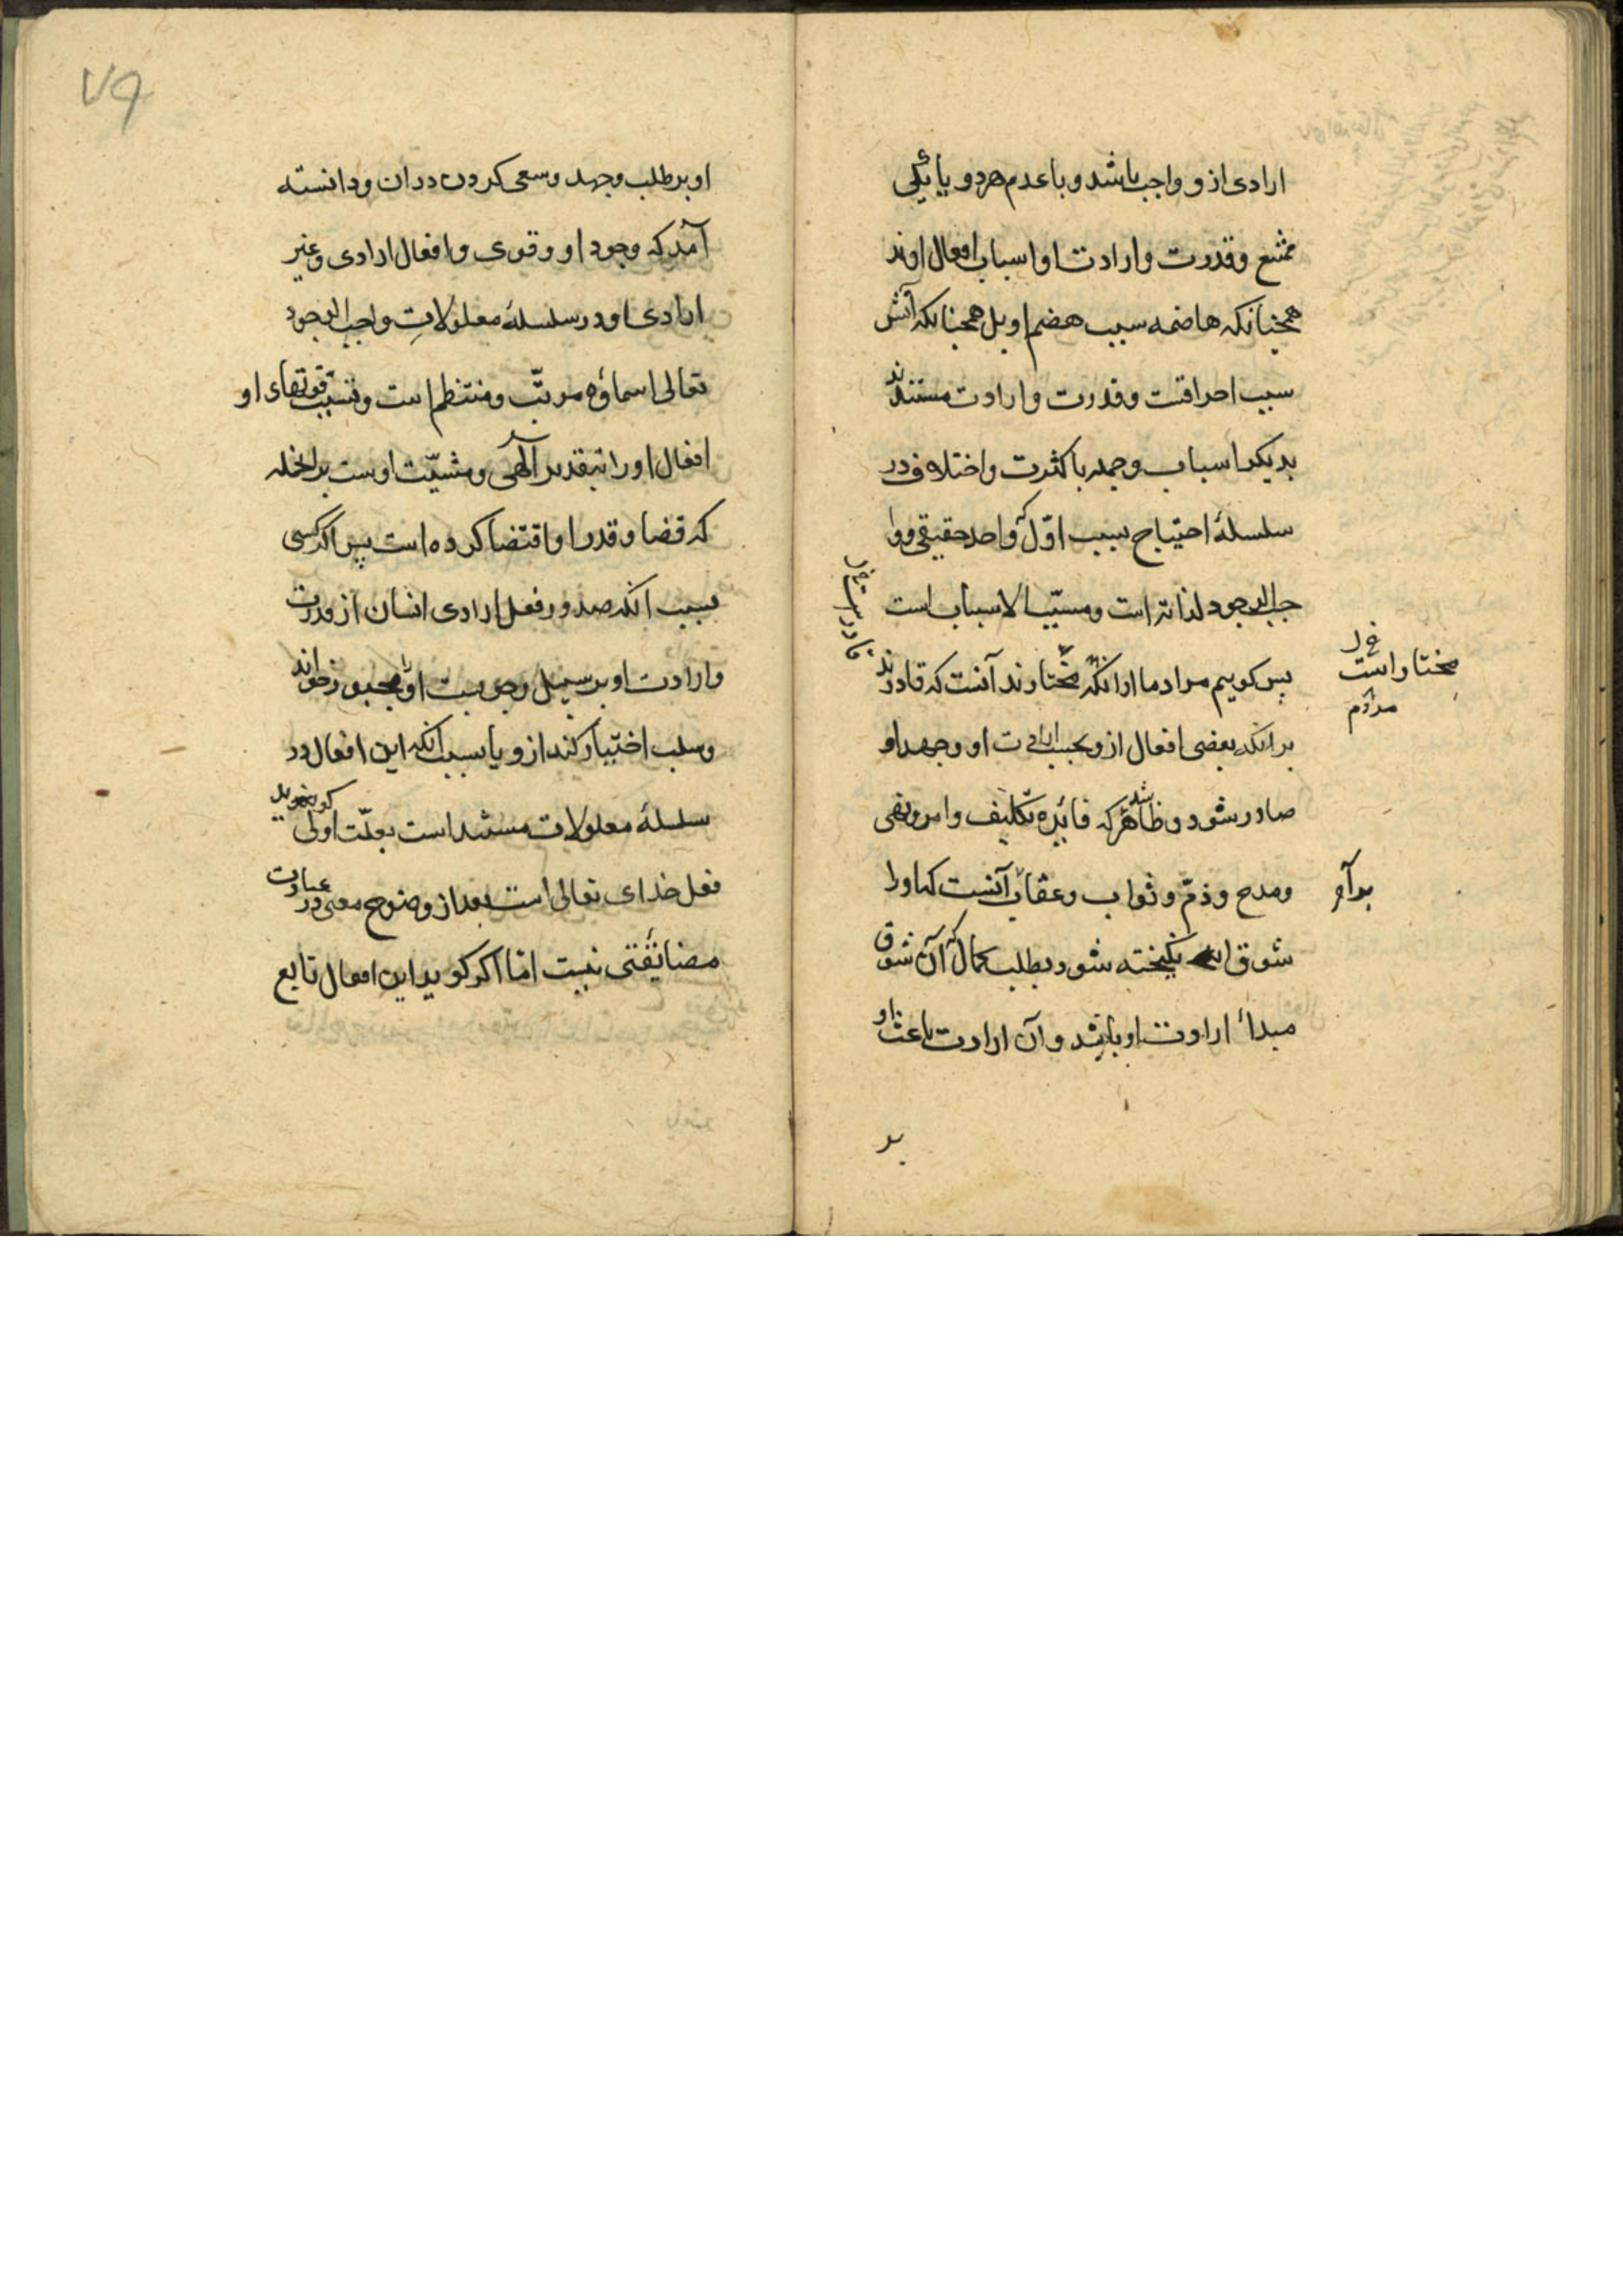 ارادی ازو واجب باشد و با عدم هردو یا یکی
ممتنع و قدرت و ارادت او اسباب افعال اوند
همچنانکه هاضمه سبب هضم او بل همچنانکه آتش
سبب احراقست و قدرت و ارادت مستندند
بدیکر اسباب و جمله با کثرت و اختلاف در
سلسلهٔ احتیاج بسبب اوّل که واحد حقیقی و وا
جب الوجود لذاته است و مسبّب الاسباب است
پس کوییم مراد ما از انکه مختارند آنست که قادرند
بر انکه بعضی افعال ازو بحسب ارادت او و جهد او
صادر شود و ظاهر شد که فائدهٔ تکلیف و امر و نهی
و مدح و ذمّ و ثواب و عقاب آنست که او را
شوق انکیخته شود بطلب کمال که آن شوق
مبدأ ارادت او باشد و آن ارادت باعث او
مختار است
مردم
بر آم
بر
٧٩
او بر طلب و جهد و سعی کردن در ان و دانسته
آمد که وجود او و قوی و افعال ارادی و غیر
ارادی او در سلسلهٔ معلولاتِ واجب الوجود
تعالی اسماؤه مرتّب و منتظم است و نسبت قوتهای او
افعال او را بتقدیر آلهی و مشیّت اوست بر انجمله
که قضا و قدر او اقتضا کرده است پس اکر کسی
بسبب انکه صدور فعل ارادی انسان از قدرت
و ارادت او بر سبیل وجوبست او را مجبور خواند
و سلب اختیار کند ازو یا بسبب انکه این افعال در
سلسلهٔ معلولات مستند است بعلّت اولی کوید
فعل خدای تعالی است بعد از وضوح معنی در عبارت
مضایقتی نیست امّا اکر کوید این افعال تابع